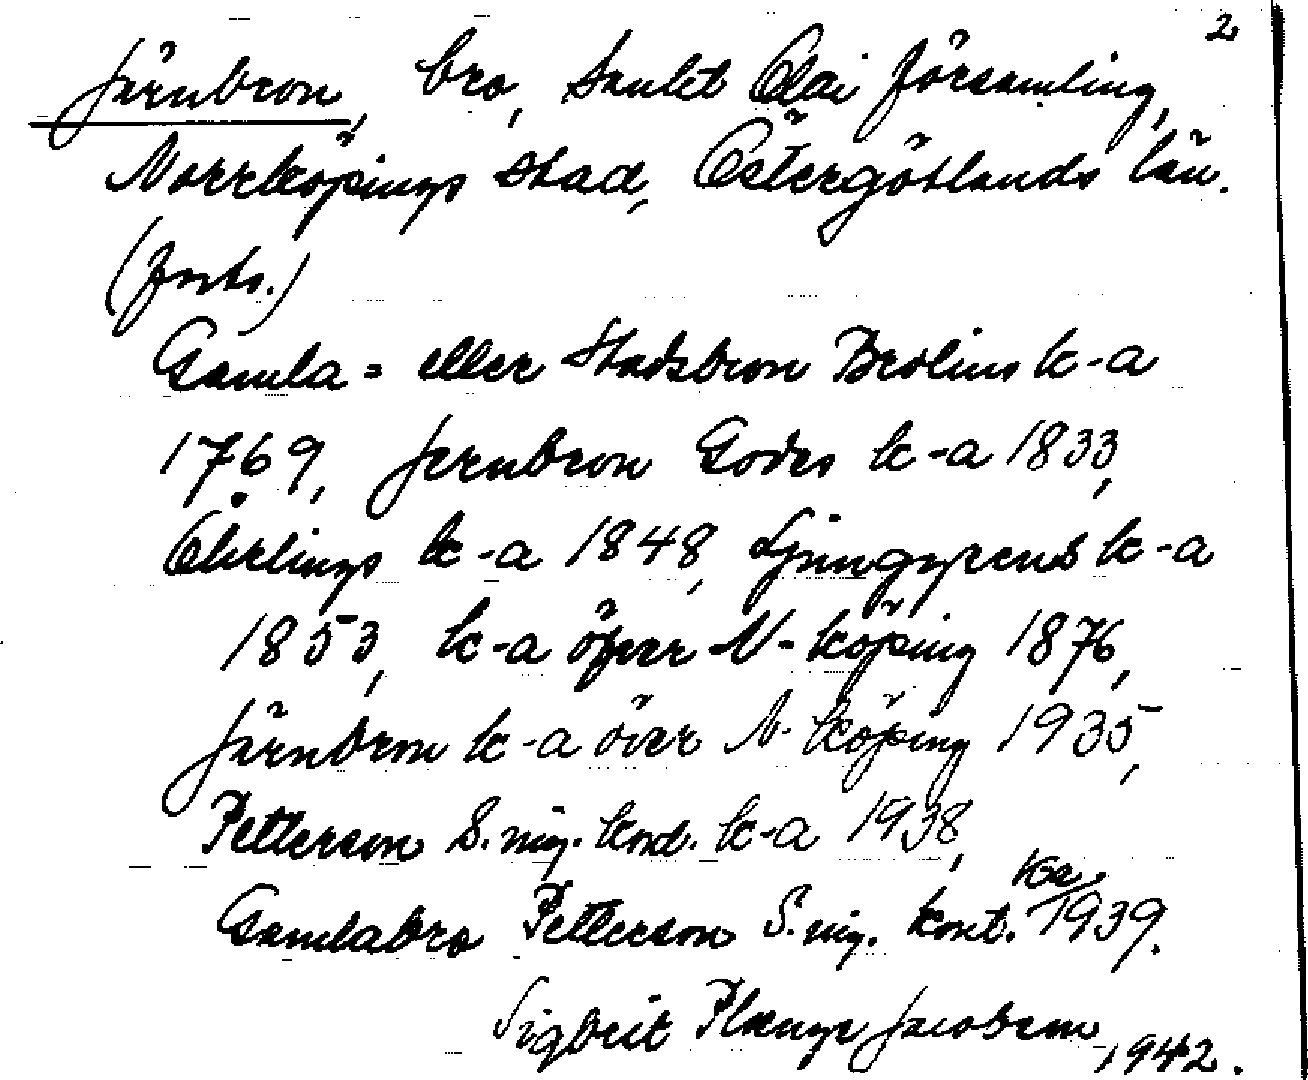 2
Järnbron, bro, Sankt Olai församling,
Norrköpings stad, Östergötlands län.
(forts.)
Gamla= eller Stadsbron Brolins k-a
1769, Jernbron Godes k-a 1833,
Öhrlings k-a 1848, Ljunggrens k-a
1853, k-a öfver N-köping 1876,
Järnbron k-a över N-köping 1935,
Petterson S. ing. kont. k-a 1938,
Gamlabro Petterson S. ing. kont. ka 1939.
Sigbrit Plænge Jacobson 1942.